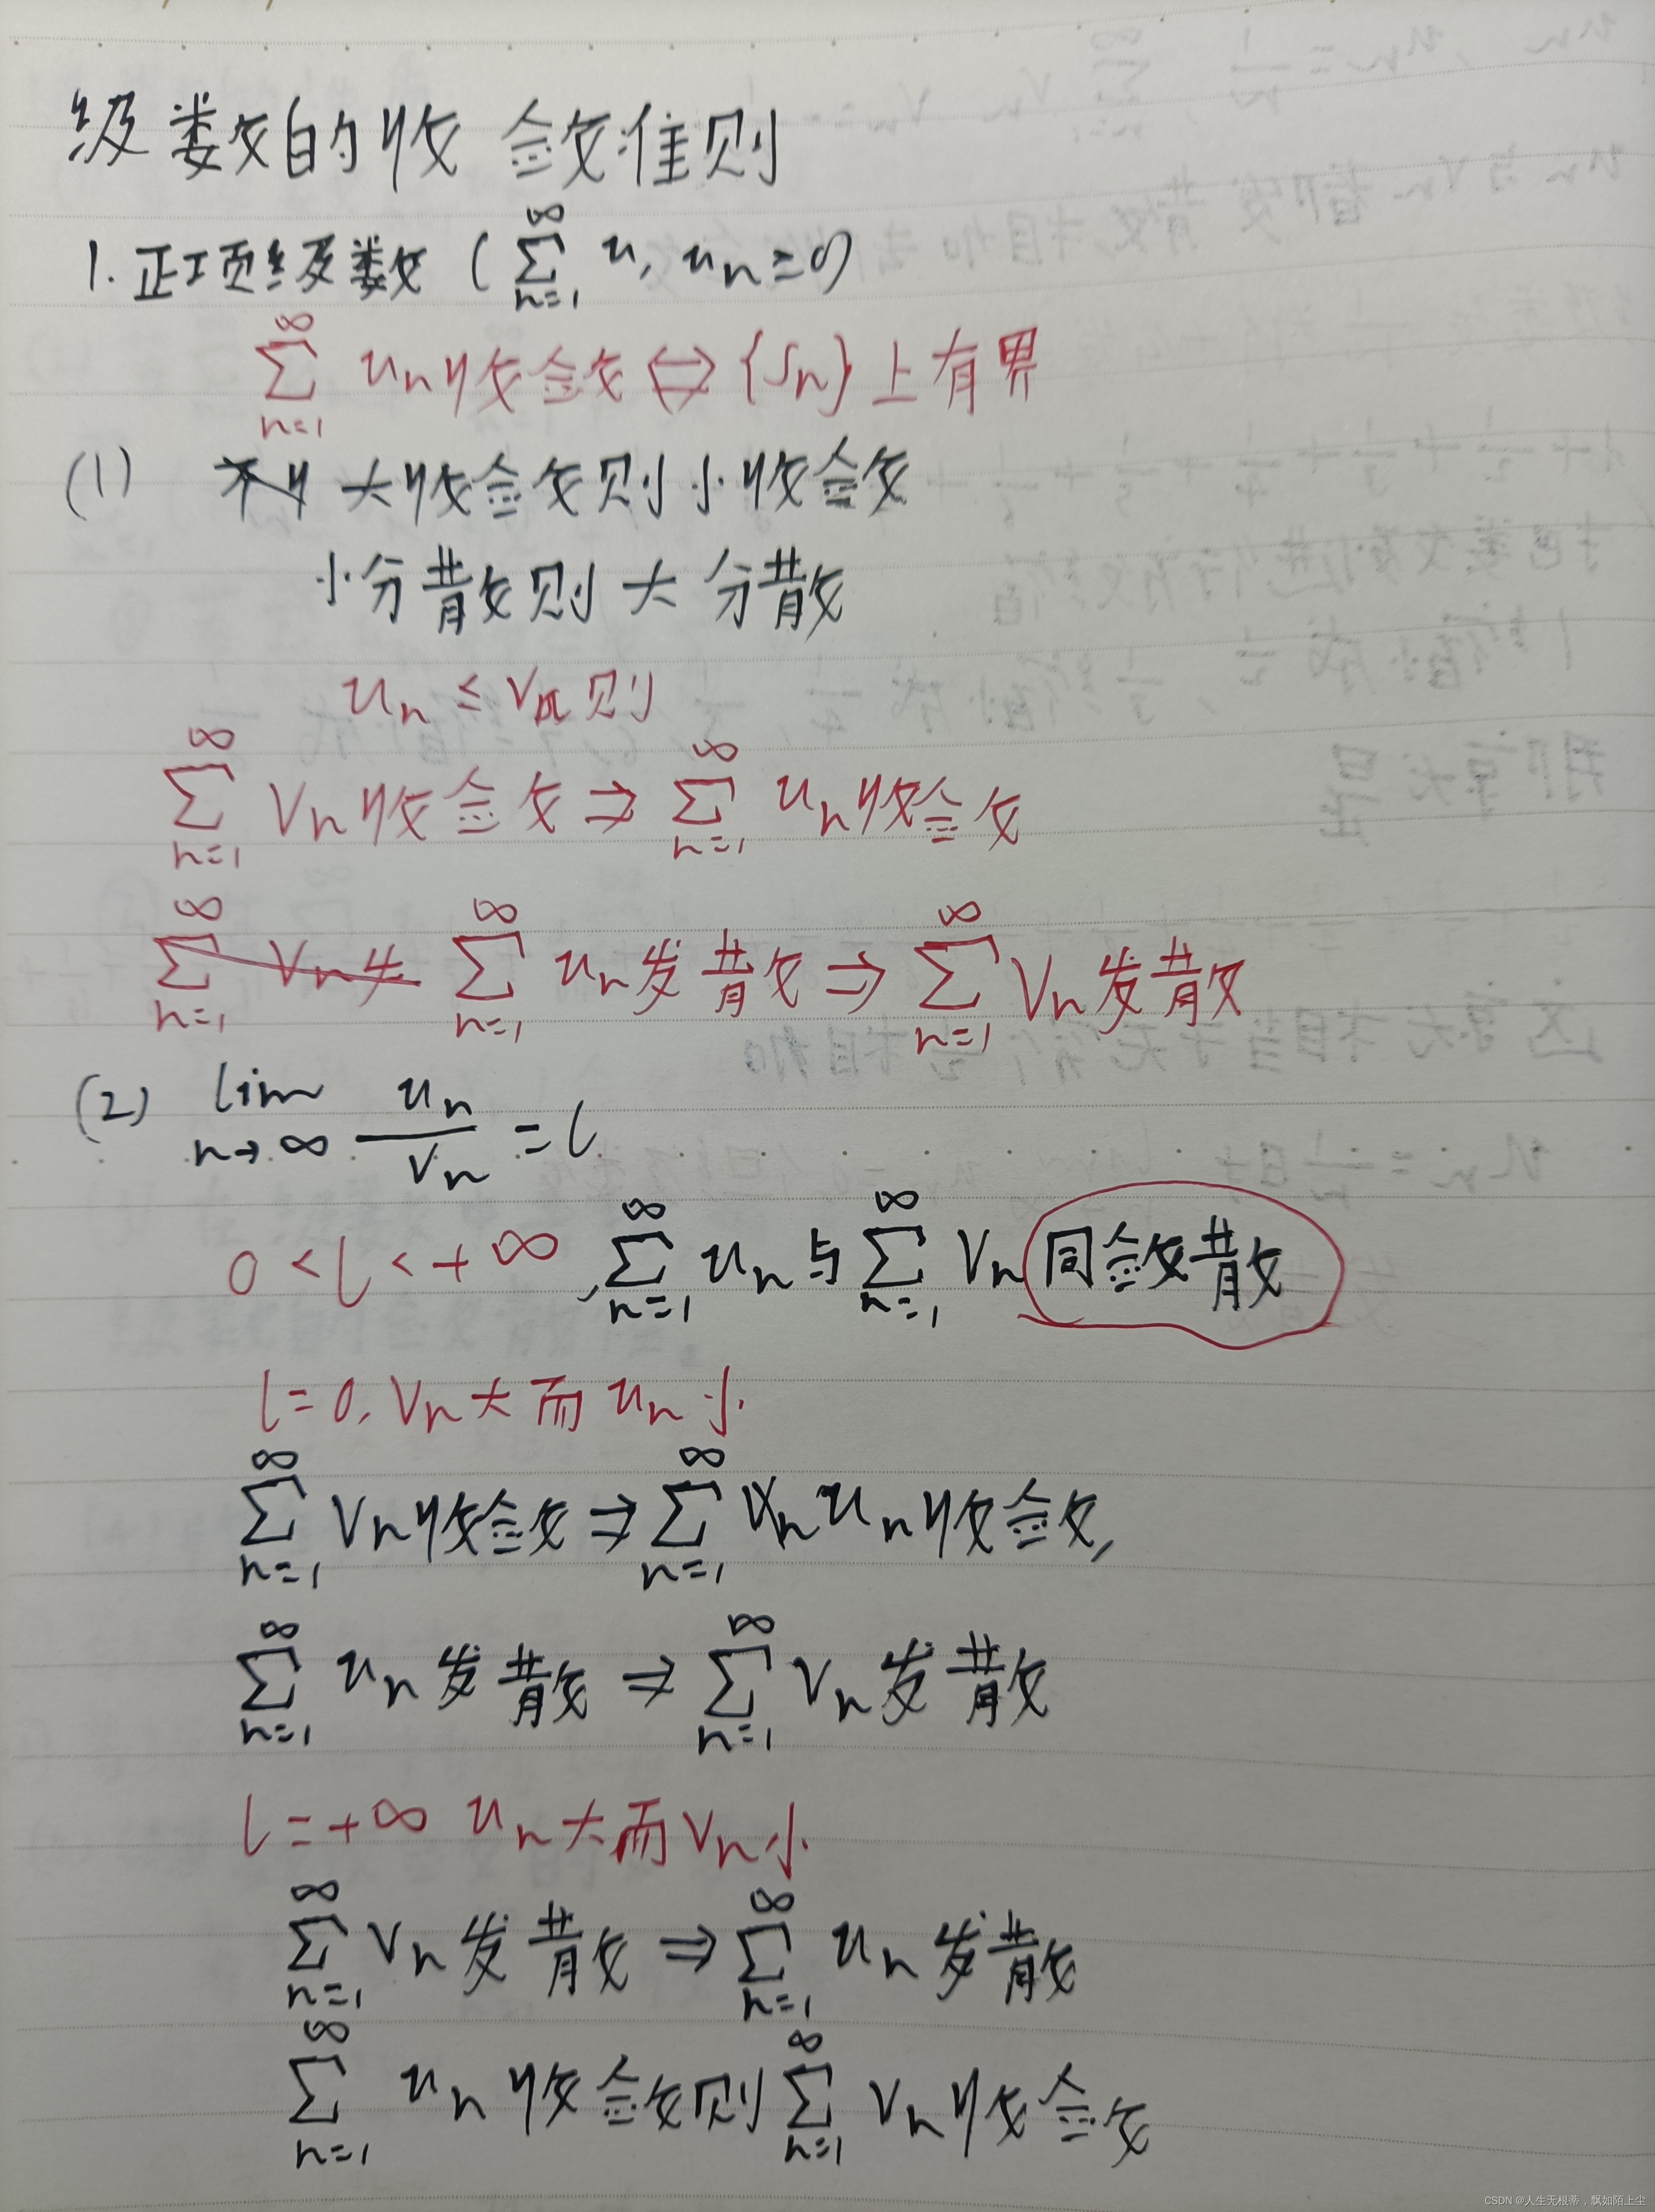 级数的收敛准则
1. 正项级数 (∑_{n=1}^{∞} u, u_n ≥ 0)
∑_{n=1}^{∞} u_n 收敛 ⇔ {S_n} 上有界
(1) 大收敛则小收敛
小分散则大分散
u_n ≤ v_n 则
∑_{n=1}^{∞} v_n 收敛 ⇒ ∑_{n=1}^{∞} u_n 收敛
∑_{n=1}^{∞} u_n 发散 ⇒ ∑_{n=1}^{∞} v_n 发散
(2) lim_{n→∞} u_n / v_n = l
0 < l < +∞, ∑_{n=1}^{∞} u_n 与 ∑_{n=1}^{∞} v_n 同敛散
l = 0, v_n 大而 u_n 小.
∑_{n=1}^{∞} v_n 收敛 ⇒ ∑_{n=1}^{∞} u_n 收敛,
∑_{n=1}^{∞} u_n 发散 ⇒ ∑_{n=1}^{∞} v_n 发散
l = +∞ u_n 大而 v_n 小.
∑_{n=1}^{∞} v_n 发散 ⇒ ∑_{n=1}^{∞} u_n 发散
∑_{n=1}^{∞} u_n 收敛则 ∑_{n=1}^{∞} v_n 收敛
CSDN @人生无根蒂，飘如陌上尘